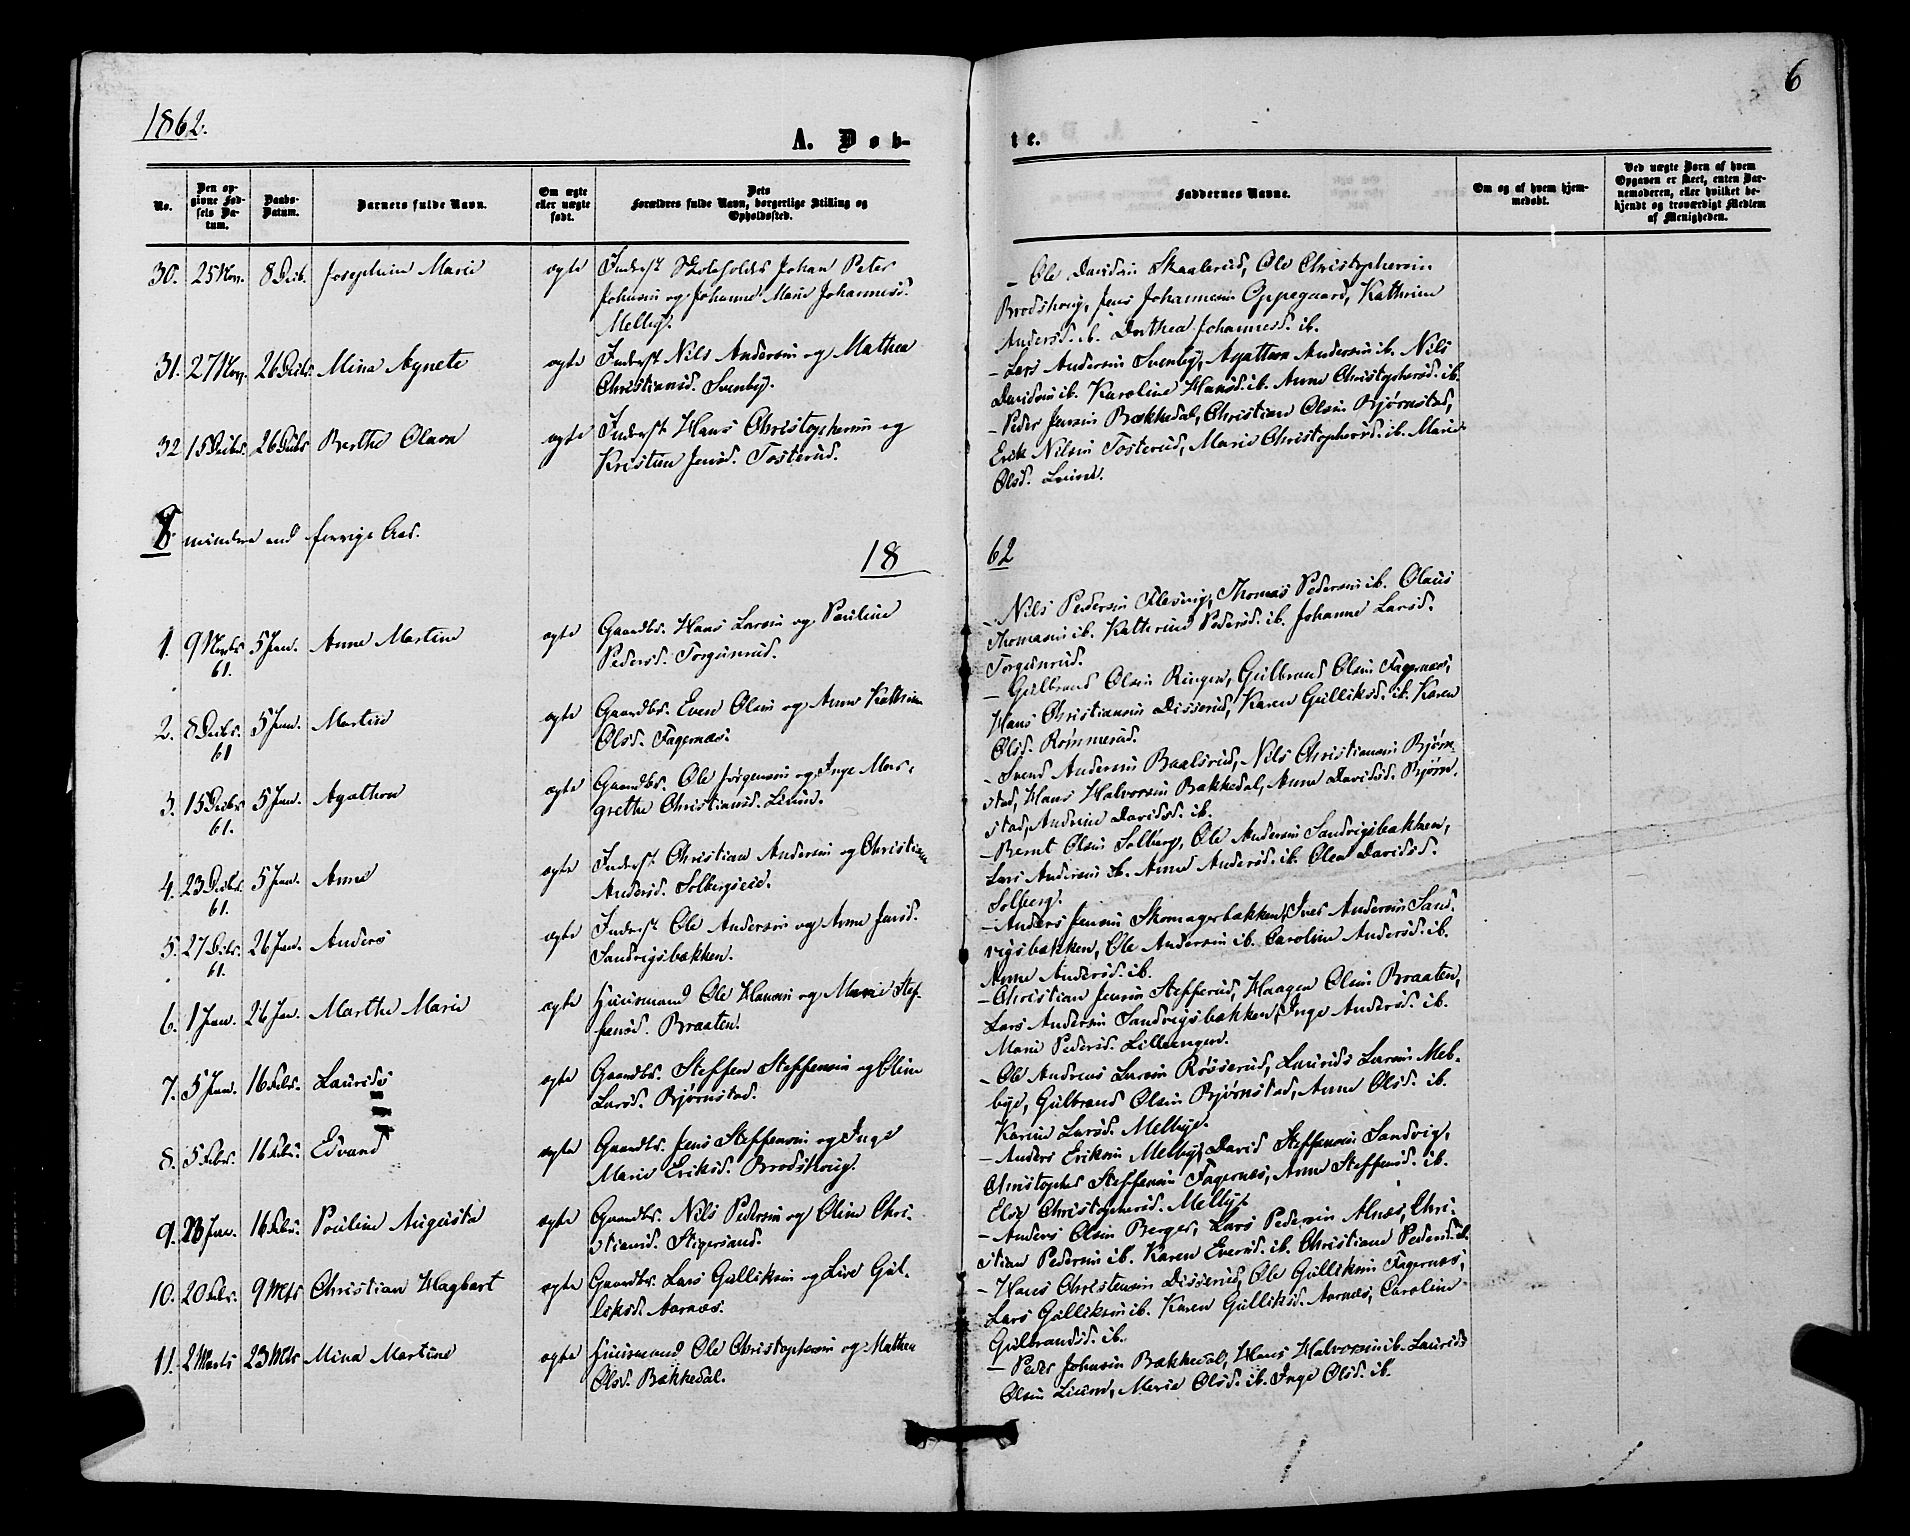 1862.
A. Døb-
te.
6
No.
Den op-
givne Fød-
sels Da-
tum.
Daabs-
Datum.
Barnets fulde Navn.
Om ægte
eller uægte
født.
Dets
Forældres fulde Navn, borgerlige Stilling og
Opholdssted.
Faddernes Navne.
Om og af hvem hjem-
medøbt.
Ved uægte Børn af hvem
Opgaven er skeet, enten Bar-
nemoderen, eller hvilket be-
kjendt og troværdigt Medlem
af Menigheden.
30. 25 Nov. 8 Decb. Josephine Marie ægte Inderst Johan Peter
Johnsen og Johanne Marie Johannesd.
Melleby.
– Ole Davidsen Skaalerud, Ole Christophersen
Brodshoug, Jens Johannesen Oppegaard, Kathrine
Andersd. ib. Dorthea Johannesd. ib.
31. 27 Nov. 26 Decbr. Mina Agnete ægte Inderst Nils Andersen og Mathea
Christiansd. Svenby.
– Lars Andersen Svenby, Agathon Andersen ib. Nils
Davidsen ib. Karoline Hansd. ib. Anne Christophersd. ib.
32 15 Decbr. 26 Decbr Berthe Olava ægte Inderst Hans Christophersen og
Kristine Jensd. Tosterud.
– Peder Jensen Bækkedal, Christian Olsen Bjørnstad,
Erik Nilsen Tosterud, Marie Christophersd. ib. Marie
Olsd. Liund.
8 mindre end forrige Aar.
1862
1. 9 Novbr 61. 5 Jan. Anne Martine ægte Gaardbr. Hans Larsen og Pauline
Pedersd. Torgunrud.
– Nils Pedersen Flesvig, Thomas Pedersen ib. Olaus
Thomasen ib. Kathrine Pedersd. ib. Johanne Larsd.
Torgunrud.
2. 8 Decbr. 61 5 Jan. Martin ægte Gaardbr. Even Olsen og Anne Kathrine
Olsd. Fagernæs.
– Gulbrand Olsen Ringen, Gulbrand Olsen Fagernæs,
Hans Christiansen Disserud, Karen Gulliksd. ib. Karen
Olsd. Rømmerud.
3. 15 Decbr 61. 5 Jan. Agathon ægte Gaardbr. Ole Jørgensen og Inge Mar-
grethe Christiansd. Liund.
– Svend Andersen Baalsrud, Nils Christiansen Bjørn-
stad, Hans Halvorsen Bækkedal, Anne Davidsd. Bjørn-
stad, Andrine Davidsd. ib.
4. 23 Decbr. 61. 5 Jan. Anne ægte Inderst Christian Andersen og Christiane
Andersd. Solbergseie.
– Bernt Olsen Solberg, Ole Andersen Sandvigsbakken,
Lars Andersen ib. Anne Andersd. ib. Olea Davidsd.
Solberg.
5. 27 Decbr. 61. 26 Jan. Anders ægte Inderst Ole Andersen og Anne Jensd.
Sandvigsbakken.
– Anders Jensen Skomagerbakken, Iver Andersen Sand-
vigsbakken, Ole Andersen ib. Caroline Andersd. ib.
Anne Andersd. ib.
6. 1 Jan. 26 Jan. Marthe Marie ægte Huusmand Ole Hansen og Marie Stef-
fensd. Braaten.
– Christian Jensen Stefferud, Haagen Olsen Braaten,
Lars Andersen Sandvigsbakken, Inge Andersd. ib.
Marie Pedersd. Lilleengen.
7. 5 Jan. 16 Febr. Laurids ægte Gaardbr. Steffen Steffensen og Oline
Larsd. Bjørnstad.
– Ole Andreas Larsen Røsserud, Laurids Larsen Mel-
bye, Gulbrand Olsen Bjørnstad, Anne Olsd. ib.
Karine Larsd. Melbye.
8. 5 Febr. 16 Febr. Edvard ægte Gaardbr. Jens Steffensen og Inge
Marie Eriksd. Brodshoug.
– Anders Eriksen Melleby, David Steffensen Sandvig,
Christopher Steffensen Fagernæs, Anne Steffensd. ib.
Else Christophersd. Melleby.
9. 23 Jan. 16 Febr. Pouline Augusta ægte Gaardbr. Nils Pedersen og Oline Chri-
stiansd. Stigersand.
– Anders Olsen Berger, Lars Pedersen Alnæs, Chri-
stian Pedersen ib. Karen Eversd. ib. Christiane Pedersd. ib.
10. 20 Febr. 9 Mts Christian Hagbart ægte Gaardbr. Lars Gulliksen og Live Gul-
liksd. Aarnæs.
– Hans Christensen Disserud, Ole Gulliksen Fagernæs,
Lars Gulliksen ib. Karen Gulliksd. Aarnæs, Caroline
Gulbrandsd. ib.
11. 2 Marts 23 Mts Mina Martine ægte Huusmand Ole Christophersen og Mathea
Olsd. Bækkedal.
– Peder Johnsen Bækkedal, Hans Halvorsen ib. Laurids
Olsen Liund, Marie Olsd. ib. Inge Olsd. ib.